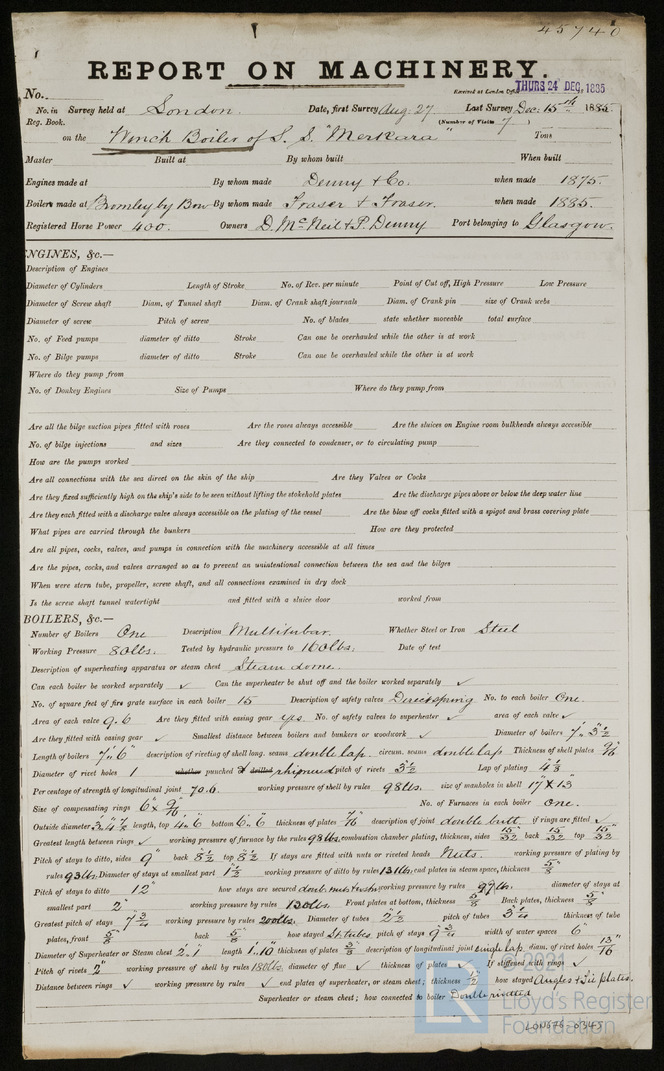 45740
REPORT ON MACHINERY.
No.
Received at London Office THURS 24 DEC, 1885
No. in Survey held at London. Date, first Survey Aug: 27 Last Survey Dec: 15th 1885.
Reg. Book. (Number of Visits 7)
on the Winch Boiler of S. S. "Merkara" Tons
Master Built at By whom built When built
Engines made at By whom made Denny & Co. when made 1875.
Boilers made at Bromley by Bow By whom made Fraser & Fraser. when made 1885.
Registered Horse Power 400. Owners D. McNeil & P. Denny Port belonging to Glasgow.
ENGINES, &c.—
Description of Engines
Diameter of Cylinders Length of Stroke No. of Rev. per minute Point of Cut off, High Pressure Low Pressure
Diameter of Screw shaft Diam. of Tunnel shaft Diam. of Crank shaft journals Diam. of Crank pin size of Crank webs
Diameter of screw Pitch of screw No. of blades state whether moveable total surface
No. of Feed pumps diameter of ditto Stroke Can one be overhauled while the other is at work
No. of Bilge pumps diameter of ditto Stroke Can one be overhauled while the other is at work
Where do they pump from
No. of Donkey Engines Size of Pumps Where do they pump from
Are all the bilge suction pipes fitted with roses Are the roses always accessible Are the sluices on Engine room bulkheads always accessible
No. of bilge injections and sizes Are they connected to condenser, or to circulating pump
How are the pumps worked
Are all connections with the sea direct on the skin of the ship Are they Valves or Cocks
Are they fixed sufficiently high on the ship's side to be seen without lifting the stokehold plates Are the discharge pipes above or below the deep water line
Are they each fitted with a discharge valve always accessible on the plating of the vessel Are the blow off cocks fitted with a spigot and brass covering plate
What pipes are carried through the bunkers How are they protected
Are all pipes, cocks, valves, and pumps in connection with the machinery accessible at all times
Are the pipes, cocks, and valves arranged so as to prevent an unintentional connection between the sea and the bilges
When were stern tube, propeller, screw shaft, and all connections examined in dry dock
Is the screw shaft tunnel watertight and fitted with a sluice door worked from
BOILERS, &c.—
Number of Boilers One Description Multitubar. Whether Steel or Iron Steel
Working Pressure 80lbs. Tested by hydraulic pressure to 160lbs. Date of test
Description of superheating apparatus or steam chest Steam dome.
Can each boiler be worked separately ✓ Can the superheater be shut off and the boiler worked separately ✓
No. of square feet of fire grate surface in each boiler 15 Description of safety valves Direct spring No. to each boiler One.
Area of each valve 9.6 Are they fitted with easing gear yes. No. of safety valves to superheater ✓ area of each valve ✓
Are they fitted with easing gear ✓ Smallest distance between boilers and bunkers or woodwork ✓ Diameter of boilers 7' 3½"
Length of boilers 7' 6" description of riveting of shell long. seams double lap. circum. seams double lap Thickness of shell plates 9/16
Diameter of rivet holes 1 whether punched or drilled pitch of rivets 3½" Lap of plating 4⅞
Percentage of strength of longitudinal joint 70.6. working pressure of shell by rules 98lbs. size of manholes in shell 17" X 13"
Size of compensating rings 6" x 9/16 No. of Furnaces in each boiler one.
Outside diameter 3' 4⅞" length, top 4' 6" bottom 6' 6" thickness of plates 7/16 description of joint double butt if rings are fitted ✓
Greatest length between rings ✓ working pressure of furnace by the rules 98lbs. combustion chamber plating, thickness, sides 15/32 back 15/32 top 15/32
Pitch of stays to ditto, sides 9" back 8½ top 8½ If stays are fitted with nuts or riveted heads Nuts. working pressure of plating by
rules 93lbs Diameter of stays at smallest part 1⅜ working pressure of ditto by rules 131lbs. end plates in steam space, thickness 5/8
Pitch of stays to ditto 12" how stays are secured doub. nuts & wshrs working pressure by rules 97lbs. diameter of stays at
smallest part 2" working pressure by rules 130lbs. Front plates at bottom, thickness 5/8 Back plates, thickness 5/8
Greatest pitch of stays 7¾" working pressure by rules 200lbs. Diameter of tubes 2½" pitch of tubes 3¼" thickness of tube
plates, front 5/8 back 5/8 how stayed St. tubes. pitch of stays 9¾" width of water spaces 6"
Diameter of Superheater or Steam chest 2' 1" length 1' 10" thickness of plates 3/8 description of longitudinal joint single lap. diam. of rivet holes 13/16
Pitch of rivets 2" working pressure of shell by rules 180lbs. diameter of flue ✓ thickness of plates ✓ If stiffened with rings ✓
Distance between rings ✓ working pressure by rules ✓ end plates of superheater, or steam chest; thickness ½" how stayed Angles & Tie plates.
Superheater or steam chest; how connected to boiler Double riveted
© 2021
Lloyd's Register
Foundation
LON676-0345